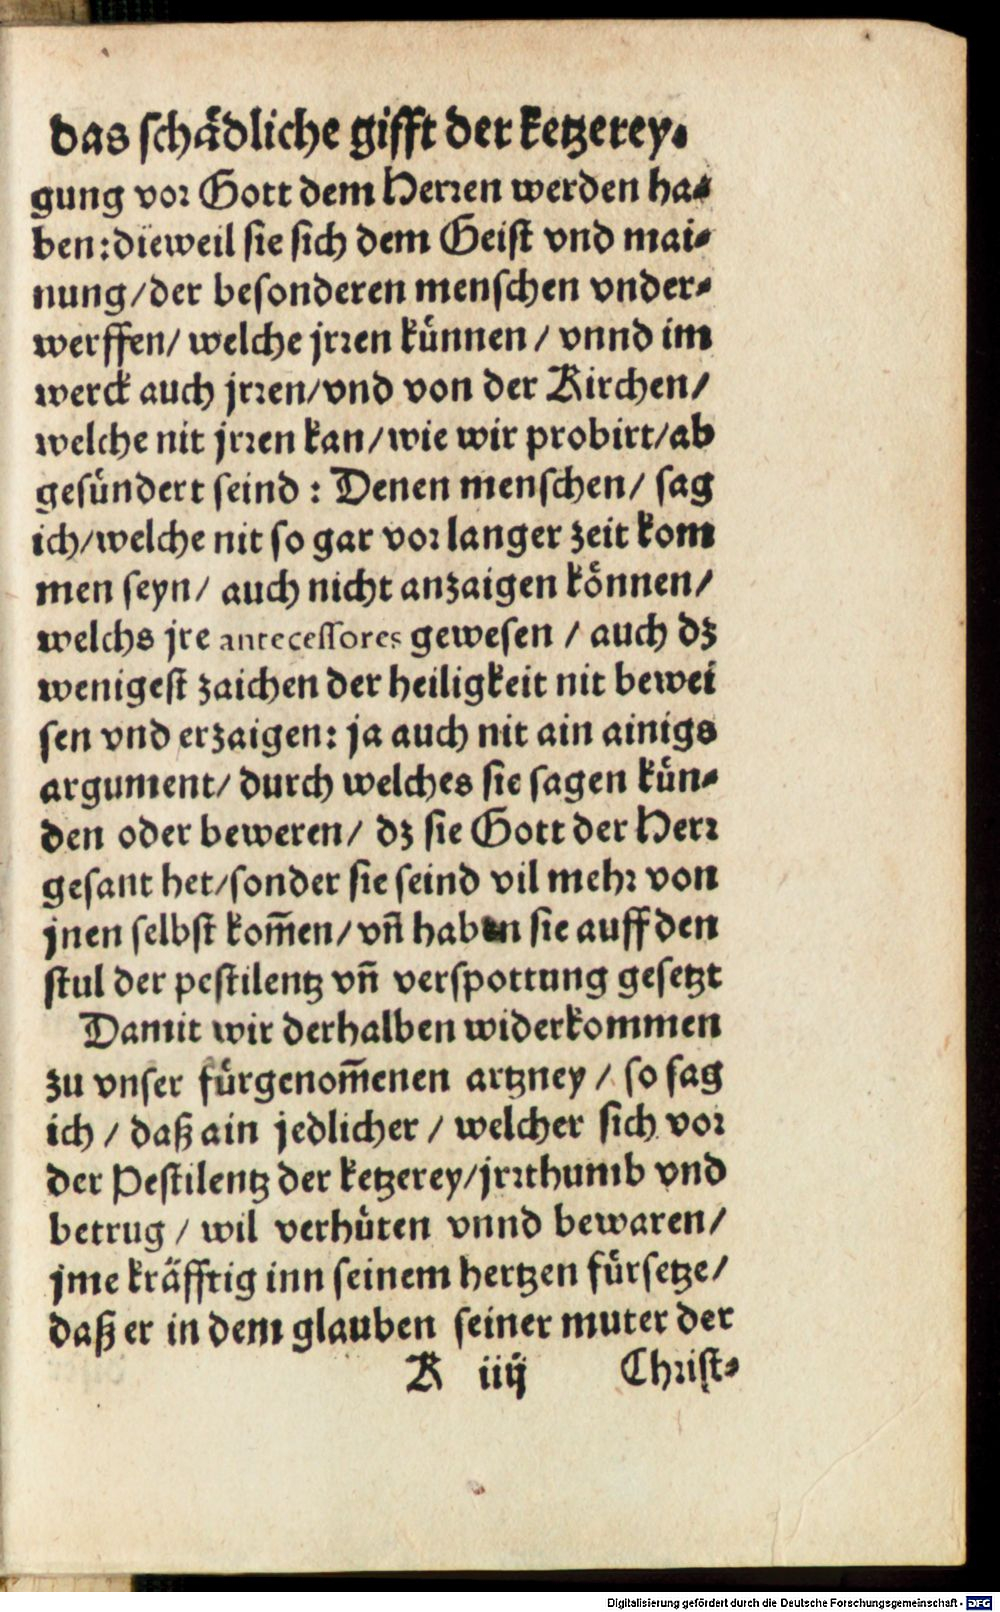 das schädliche gifft der ketzerey.
gung vor Gott dem Herren werden ha-
ben: dieweil sie sich dem Geist vnd mai-
nung/ der besonderen menschen vnder-
werffen/ welche jrren künnen / vnnd im
werck auch jrren/ vnd von der Kirchen/
welche nit jrren kan/ wie wir probirt/ ab
gesündert seind : Denen menschen/ sag
ich/ welche nit so gar vor langer zeit kom
men seyn/ auch nicht anzaigen können/
welchs jre antecessores gewesen / auch dz
wenigest zaichen der heiligkeit nit bewei
sen vnd erzaigen: ja auch nit ain ainigs
argument/ durch welches sie sagen kün-
den oder beweren/ dz sie Gott der Herr
gesant het/ sonder sie seind vil mehr von
jnen selbst kom̄en/ vn̄ haben sie auff den
stul der pestilentz vn̄ verspottung gesetzt
Damit wir derhalben widerkommen
zu vnser fürgenom̄enen artzney / so sag
ich / daß ain jedlicher / welcher sich vor
der Pestilentz der ketzerey/ jrrthumb vnd
betrug / wil verhüten vnnd bewaren/
jme kräfftig inn seinem hertzen fürsetze/
daß er in dem glauben seiner muter der
K iiij Christ-
Digitalisierung gefördert durch die Deutsche Forschungsgemeinschaft - DFG